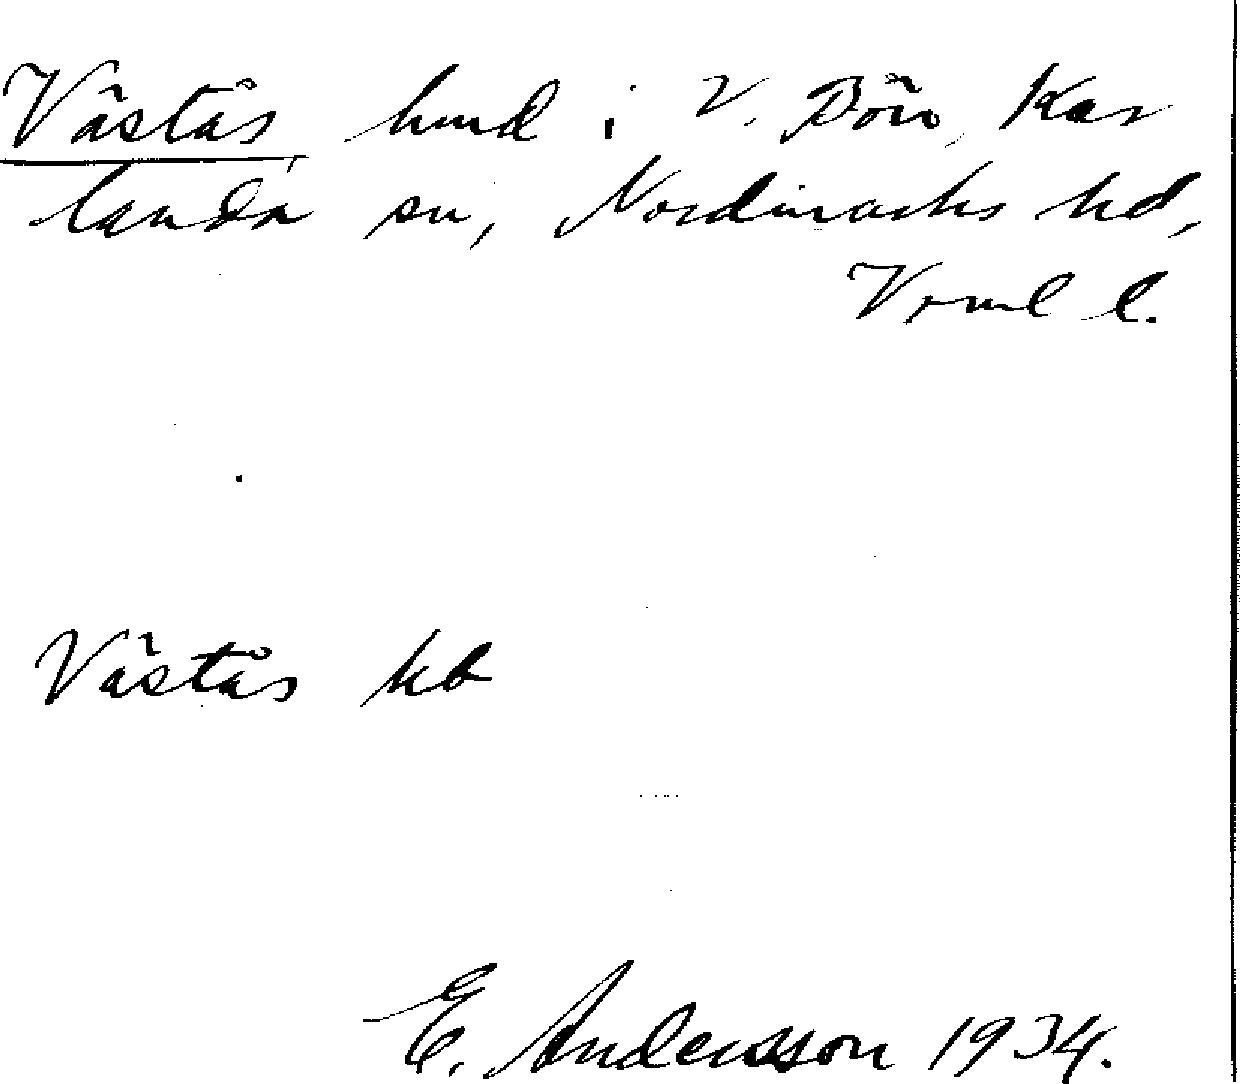 Västås hmd i V. Bön, Kar
landa sn, Nordmarks hd,
Vrml l.
Västås kb
E. Andersson 1934.